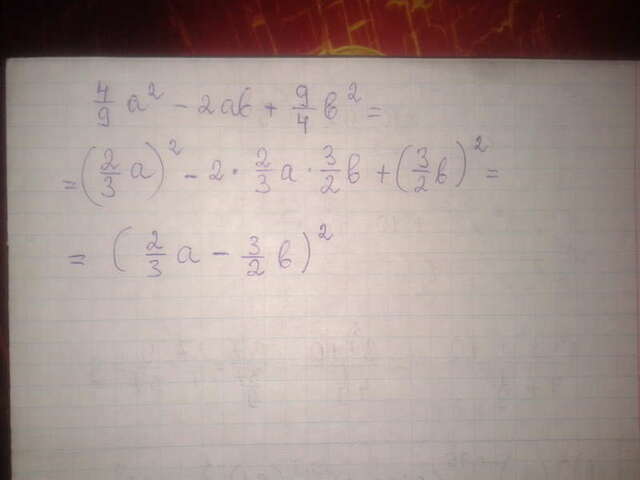 4/9 a² - 2ab + 9/4 b² =
= (2/3 a)² - 2 · 2/3 a · 3/2 b + (3/2 b)² =
= (2/3 a - 3/2 b)²